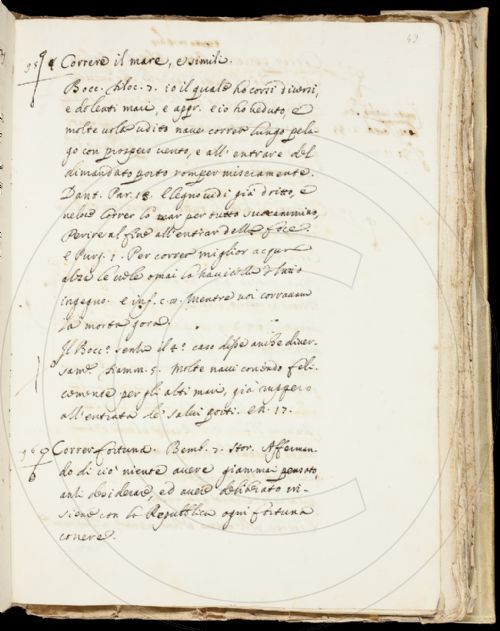 49
95 Correre il mare, e simili.
Bocc. filoc. 7. io il quale ho corsi diversi,
e dolenti mari, e appr. e io ho veduto, e
molte volte udito nave correr lungo pela-
go con prospero vento, e all' entrare del
dimandato porto romper miseramente.
Dant. Par. 13. E legno vidi già dritto, e
veloce Correr lo mar per tutto suo cammino,
Perire al fine all' entrar della foce.
e Purg. 1. Per correr miglior acqua
alza le vele omai la navicella d' mio
ingegno. e inf. c. 8. Mentre noi corravam
la morta gora.
Il Bocc. senza il 4.º caso disse anche diver-
sam.e fiamm. 5. Molte navi correndo feli-
cemente per gli alti mari, già ruppero
all' entrata de' salvi porti. e n. 17.
96 Correr fortuna. Bemb. 7. Stor. Afferman-
do di ciò niente avere giammai pensato,
anzi desiderare, ed avere deliberato in-
sieme con la Repubblica ogni fortuna
correre.